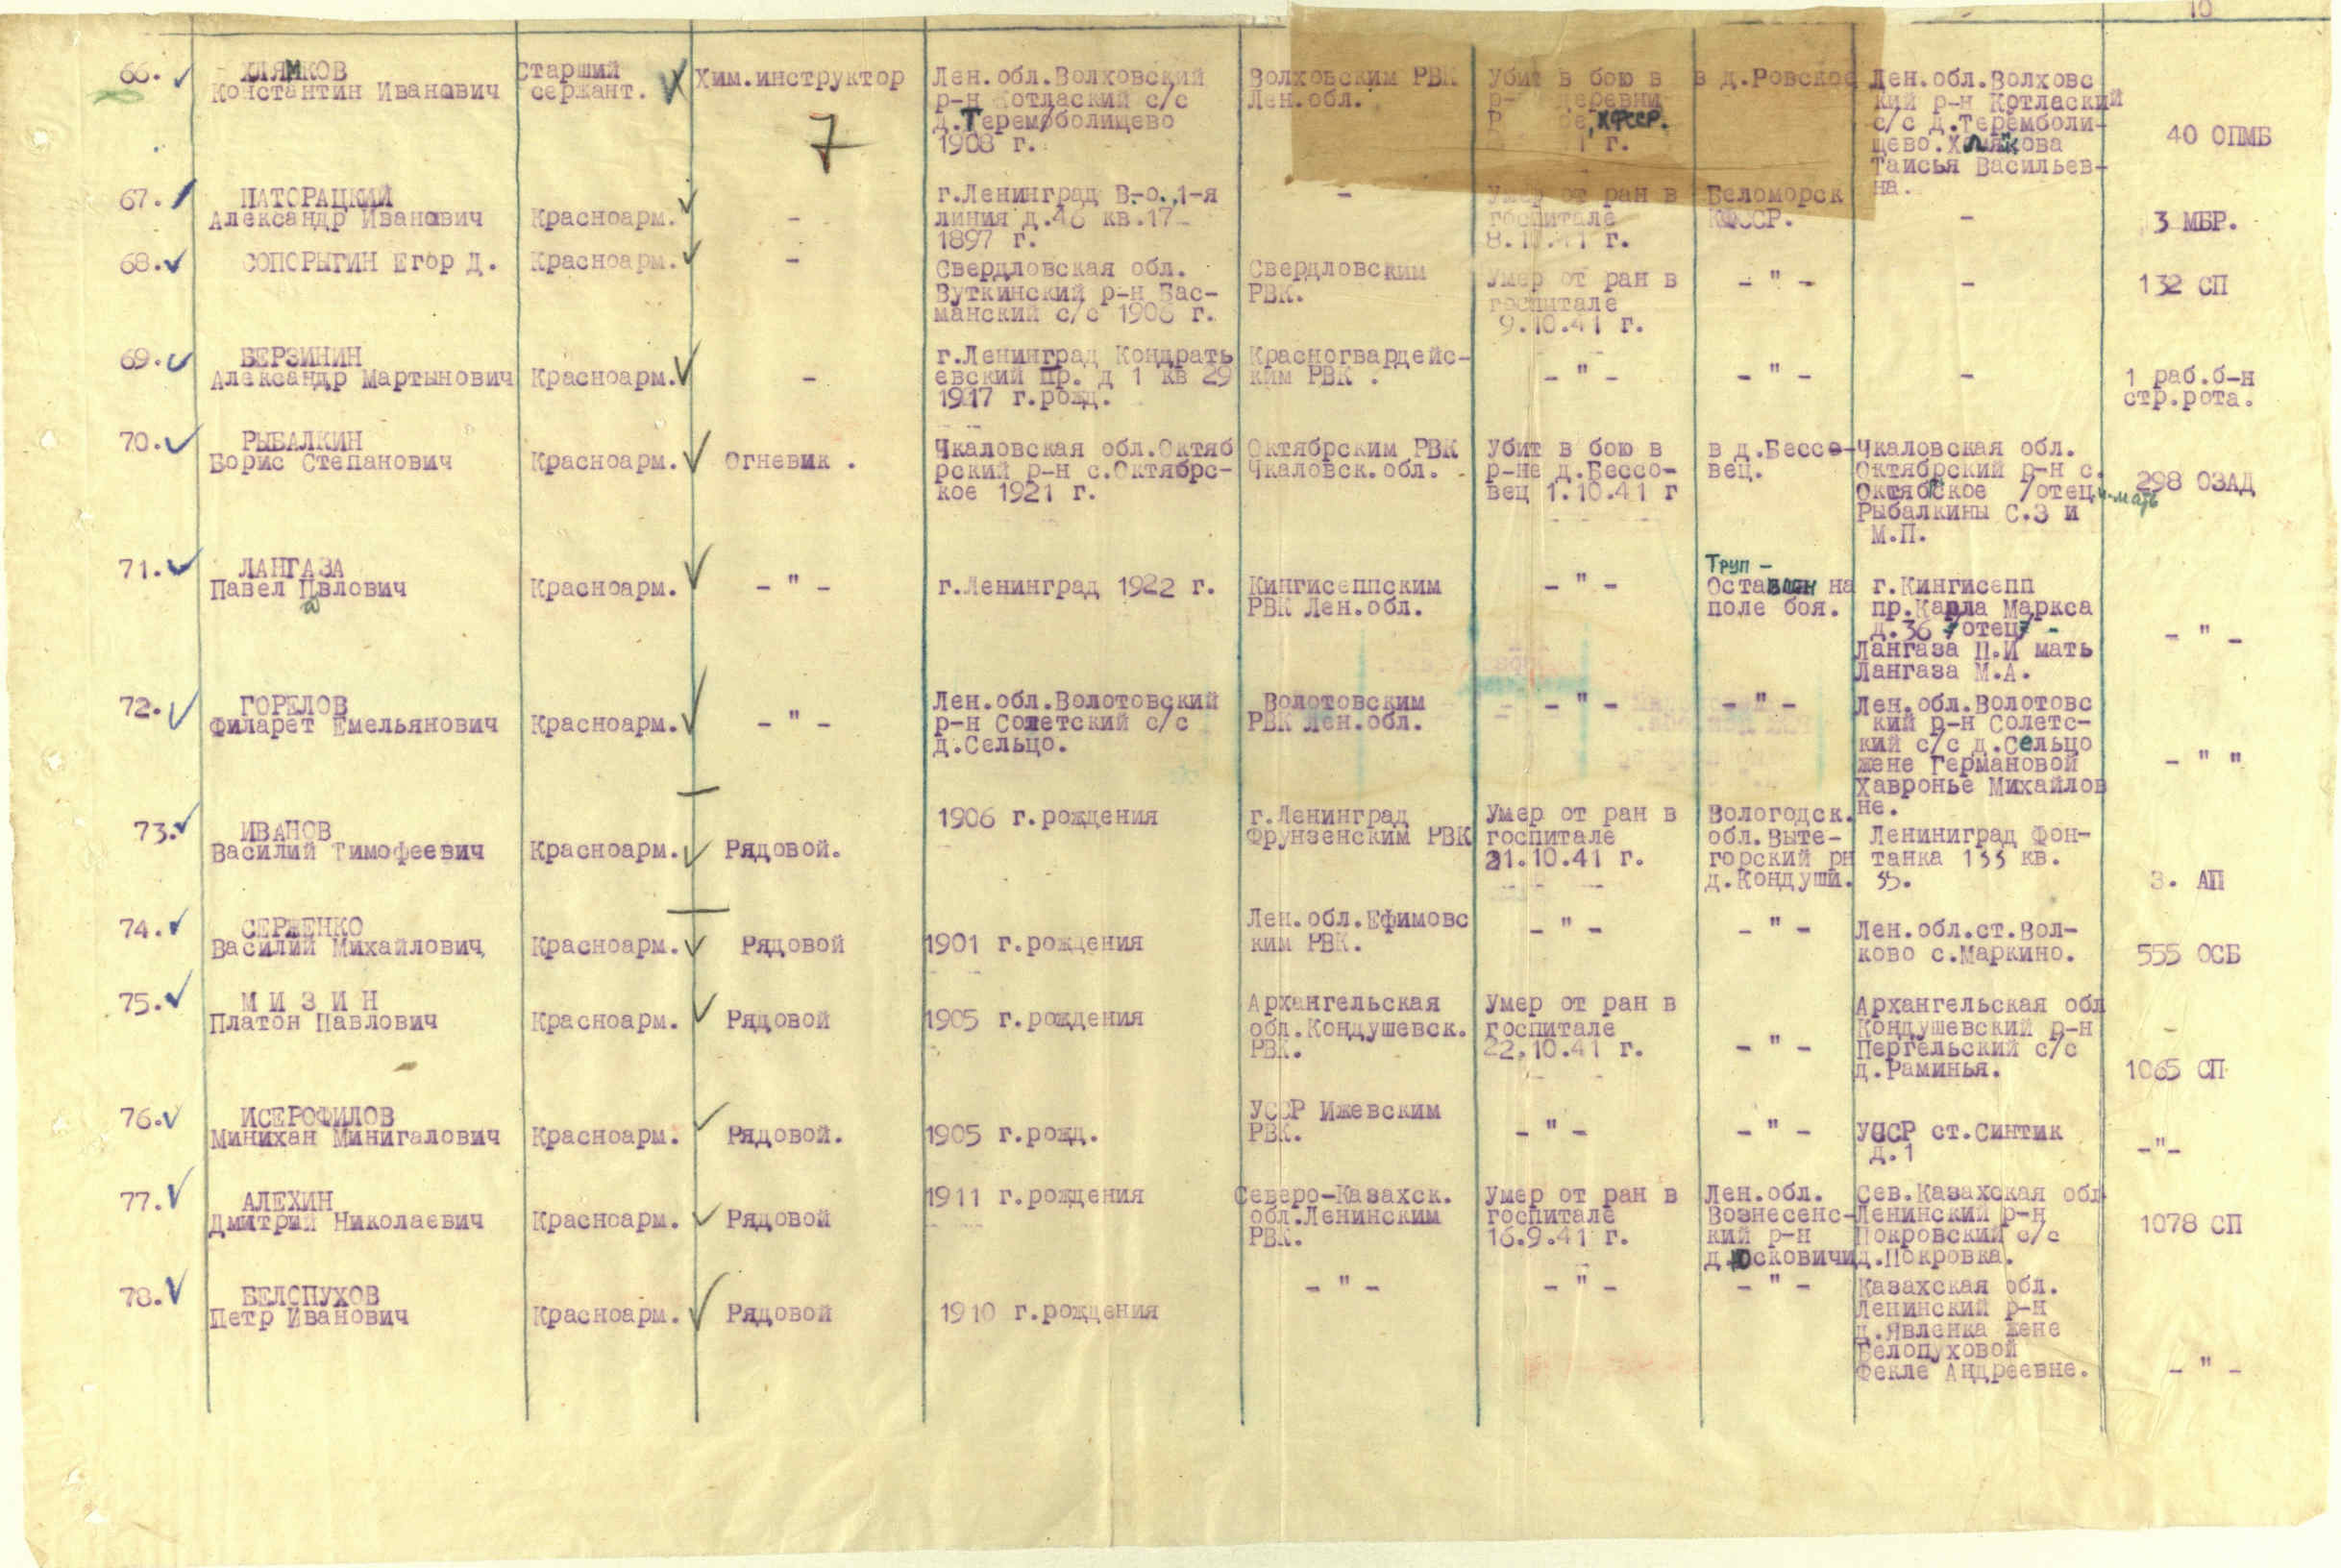 10
66. ХЛЯМКОВ
Константин Иванович
Старший
сержант.
Хим.инструктор
7
Лен.обл.Волховский
р-н Котлаский с/с
д.Теремболищево
1908 г.
Волховским РВК
Лен.обл.
Убит в бою в
деревни
КФССР.
г.
в д.Ровское
Лен.обл.Волховс
кий р-н Котлаский
с/с д.Теремболи-
щево.
Таисья Васильев-
на.
40 ОПМБ
67. НАТОРАЦКИЙ
Александр Иванович
Красноарм.
-
г.Ленинград В.-о.,1-я
линия д.46 кв.17-
1897 г.
-
Умер от ран в
госпитале
41 г.
Беломорск
КФССР.
-
3 МБР.
68. СОПОРЫГИН Егор Д.
Красноарм.
-
Свердловская обл.
Буткинский р-н Бас-
манский с/с 1908 г.
Свердловским
РВК.
Умер от ран в
госпитале
9.10.41 г.
- " -
-
132 СП
69. БЕРЗИНИН
Александр Мартынович
Красноарм.
-
г.Ленинград Кондрать
евский пр. д 1 кв 29
1917 г.рожд.
Красногвардейс-
ким РВК .
- " -
- " -
-
1 раб.б-н
стр.рота.
70. РЫБАЛКИН
Борис Степанович
Красноарм.
Огневик .
Чкаловская обл.Октяб
рский р-н с.Октябрс-
кое 1921 г.
Октябрским РВК
Чкаловск.обл.
Убит в бою в
р-не д.Бессо-
вец 1.10.41 г
в д.Бессо-
вец.
Чкаловская обл.
Октябрский р-н с.
Октябское /отец и-мать
Рыбалкины С.З и
М.П.
298 ОЗАД
71. ЛАНГАЗА
Павел Павлович
Красноарм.
- " -
г.Ленинград 1922 г.
Кингисеппским
РВК Лен.обл.
- " -
Труп -
Оставлен на
поле боя.
г.Кингисепп
пр.Карла Маркса
д.36 /отец/ -
Лангаза П.И мать
Лангаза М.А.
- " -
72. ГОРЕЛОВ
Филарет Емельянович
Красноарм.
- " -
Лен.обл.Волотовский
р-н Солетский с/с
д.Сельцо.
Волотовским
РВК Лен.обл.
- " -
- " -
Лен.обл.Волотовс
кий р-н Солетс-
кий с/с д.Сельцо
жене Германовой
Хавронье Михайлов
не.
- " "
73. ИВАНОВ
Василий Тимофеевич
Красноарм.
Рядовой.
1906 г.рождения
г.Ленинград
Фрунзенским РВК
Умер от ран в
госпитале
21.10.41 г.
Вологодск.
обл.Выте-
горский рн
д.Кондуши.
Лениниград Фон-
танка 133 кв.
35.
3. АП
74. СЕРЖЕНКО
Василий Михайлович
Красноарм.
Рядовой
1901 г.рождения
Лен.обл.Ефимовс
ким РВК.
- " -
- " -
Лен.обл.ст.Вол-
ково с.Маркино.
555 ОСБ
75. М И З И Н
Платон Павлович
Красноарм.
Рядовой
1905 г.рождения
Архангельская
обл.Кондушевск.
РВК.
Умер от ран в
госпитале
22.10.41 г.
- " -
Архангельская обл
Кондушевский р-н
Пергельский с/с
д.Раминья.
-
1065 СП
76. ИСЕРОФИЛОВ
Минихан Минигалович
Красноарм.
Рядовой.
1905 г.рожд.
УССР Ижевским
РВК.
- " -
- " -
УССР ст.Синтик
д.1
-"-
77. АЛЕХИН
Дмитрий Николаевич
Красноарм.
Рядовой
1911 г.рождения
Северо-Казахск.
обл.Ленинским
РВК.
Умер от ран в
госпитале
16.9.41 г.
Лен.обл.
Вознесенс-
кий р-н
д.Юсковичи
Сев.Казахская обл
Ленинский р-н
Покровский с/с
д.Покровка.
1078 СП
78. БЕЛОПУХОВ
Петр Иванович
Красноарм.
Рядовой
1910 г.рождения
- " -
- " -
- " -
Казахская обл.
Ленинский р-н
д.Явленка жене
Белопуховой
Фекле Андреевне.
- " -